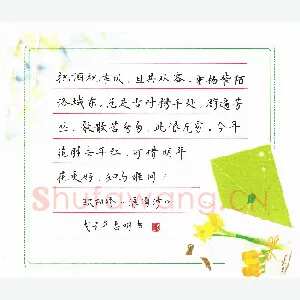 把酒祝东风，且共从容，垂杨紫陌
洛城东。总是当时携手处，游遍芳
丛。聚散苦匆匆，此恨无穷。今年
花胜去年红，可惜明年
花更好，知与谁同？
欧阳修《浪淘沙》
Shufawang.CN